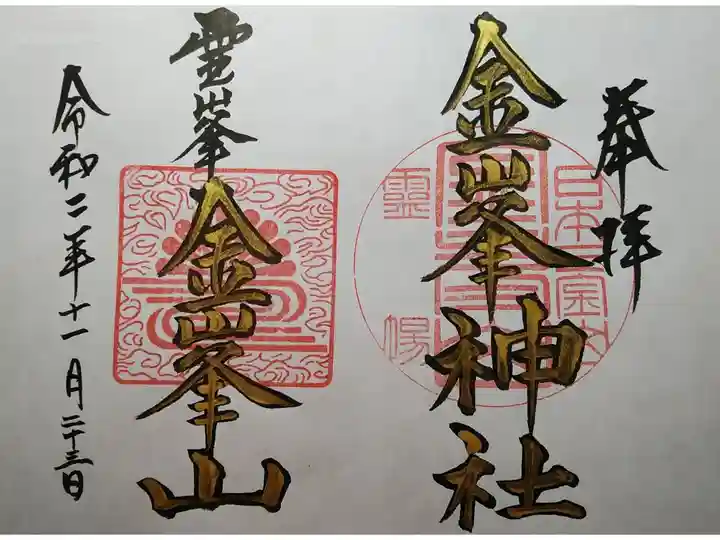 奉拝
金峯神社
霊峯
金峯山
令和二年十一月二十三日
日本
靈場